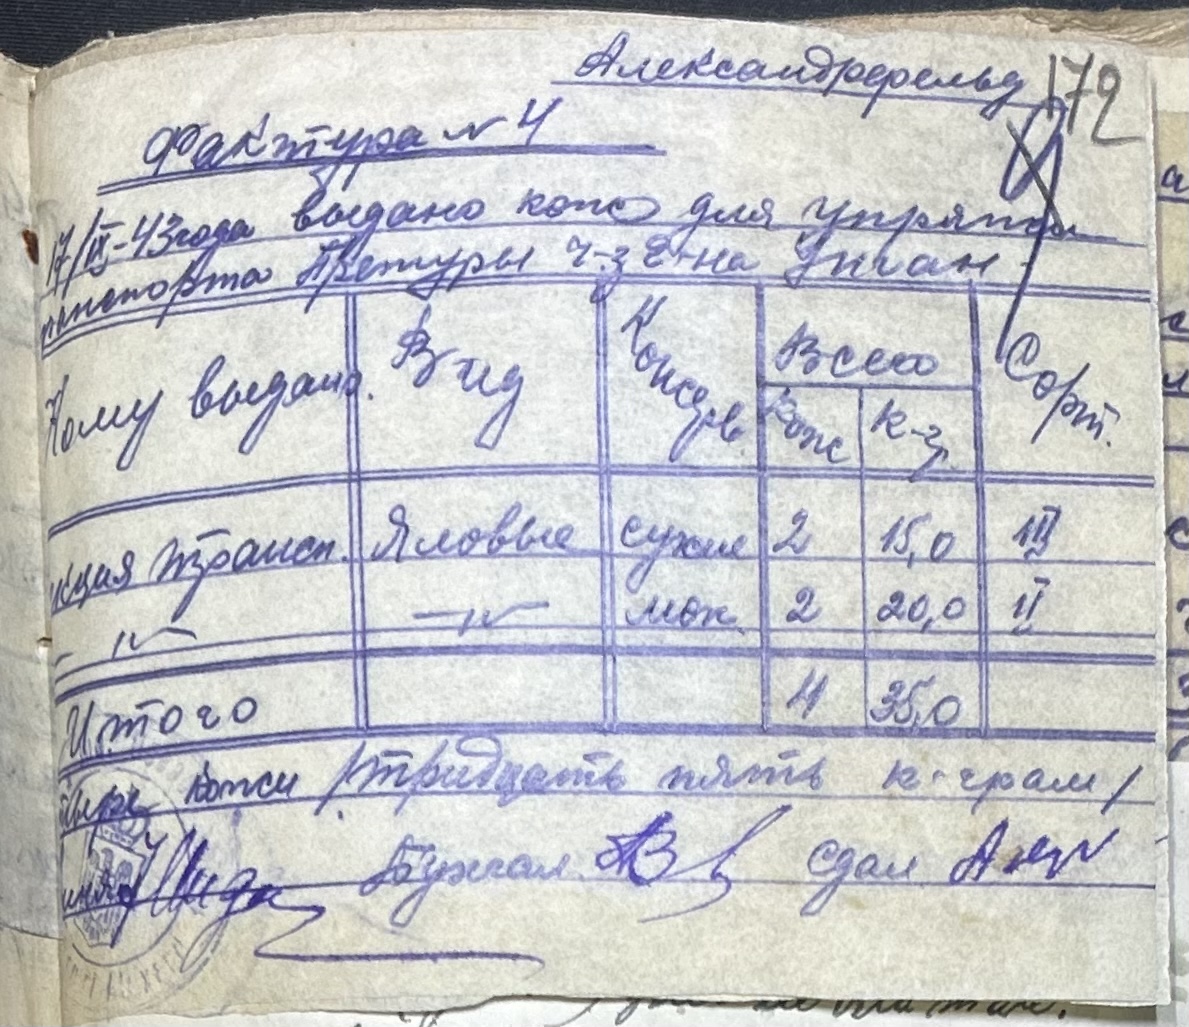 Александрфельд
172
Фактура № 4
17/III-43 года выдано кож для упряжи
транспорта Претуры ч-з г-на Унган
Кому выдано. Вид Консерв. Всего Сорт.
кож к-г.
кция трансп. Яловые сухие 2 15,0 III
-"- -"- мок. 2 20,0 II
Итого 4 35,0
четыре кожи /тридцать пять к-грам/
Бухгал. сдал